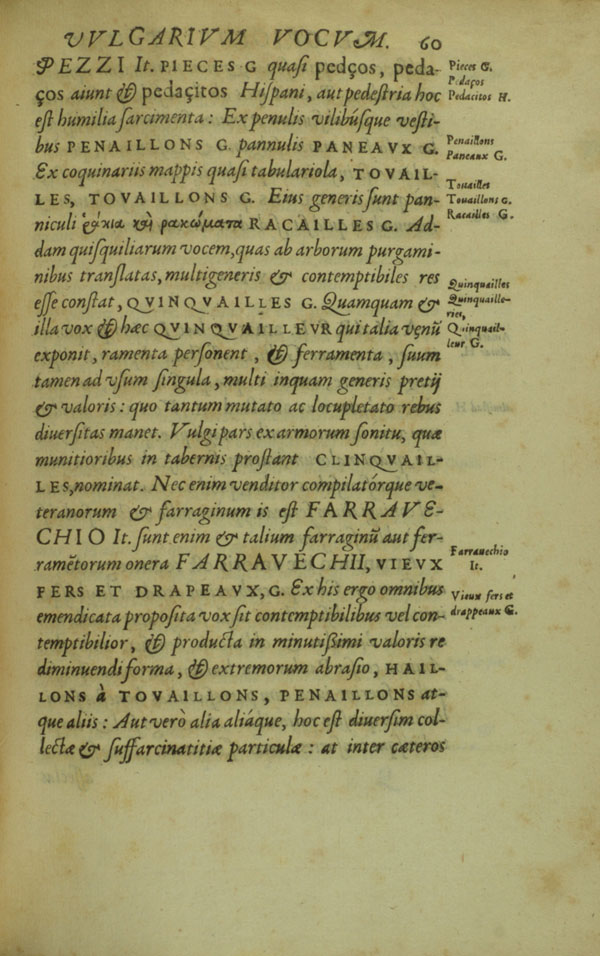 VVLGARIVM VOCVM. 60
PEZZI It. PIECES G quasi pedços, peda-
ços aiunt & pedaçitos Hispani, aut pedestria hoc
est humilia sarcimenta: Ex penulis vilibúsque vesti-
bus PENAILLONS G. pannulis PANEAVX G.
Ex coquinariis mappis quasi tabulariola, TOVAIL-
LES, TOVAILLONS G. Eius generis sunt pan-
niculi ῥάκια καὶ ρακώματα RACAILLES G. Ad-
dam quisquiliarum vocem, quas ab arborum purgami-
nibus translatas, multigeneris & contemptibiles res
esse constat, QVINQVAILLES G. Quamquam &
illa vox & hæc QVINQVAILLEVR qui talia vęnū
exponit, ramenta personent, & ferramenta, suum
tamen ad vsum singula, multi inquam generis pretij
& valoris: quo tantum mutato ac locupletato rebus
diuersitas manet. Vulgi pars ex armorum sonitu, quæ
munitioribus in tabernis prostant CLINQVAIL-
LES, nominat. Nec enim venditor compilatórque ve-
teranorum & farraginum is est FARRAVE-
CHIO It. sunt enim & talium farraginū aut fer-
ramētorum onera FARRAVECHII, VIEVX
FERS ET DRAPEAVX, G. Ex his ergo omnibus
emendicata proposita vox sit contemptibilibus vel con-
temptibilior, & producta in minutißimi valoris re
diminuendi forma, & extremorum abrasio, HAIL-
LONS à TOVAILLONS, PENAILLONS at-
que aliis: Aut verò alia aliáque, hoc est diuersim col-
lectæ & suffarcinatitiæ particulæ: at inter cæteros
Pieces G.
Pedaços
Pedacitos H.
Penaillons
Paneaux G.
Touailles
Touaillons G.
Racailles G.
Quinquailles
Quinquaille-
ries,
Quinquail-
leur G.
Farrauechio
It.
Vieux fers et
drappeaux G.